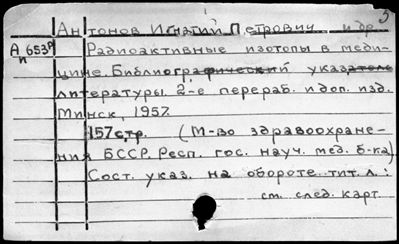 Антонов Игнатий Петрович и др.
А 653р
п
Радиоактивные изотопы в меди-
цине. Библиографический указатель
литературы. 2-е перераб. и доп. изд.
Минск, 1957.
157 стр. (М-во здравоохране-
ния БССР. Респ. гос. науч. мед. б-ка)
Сост. указ. на обороте тит. л.:
см. след. карт